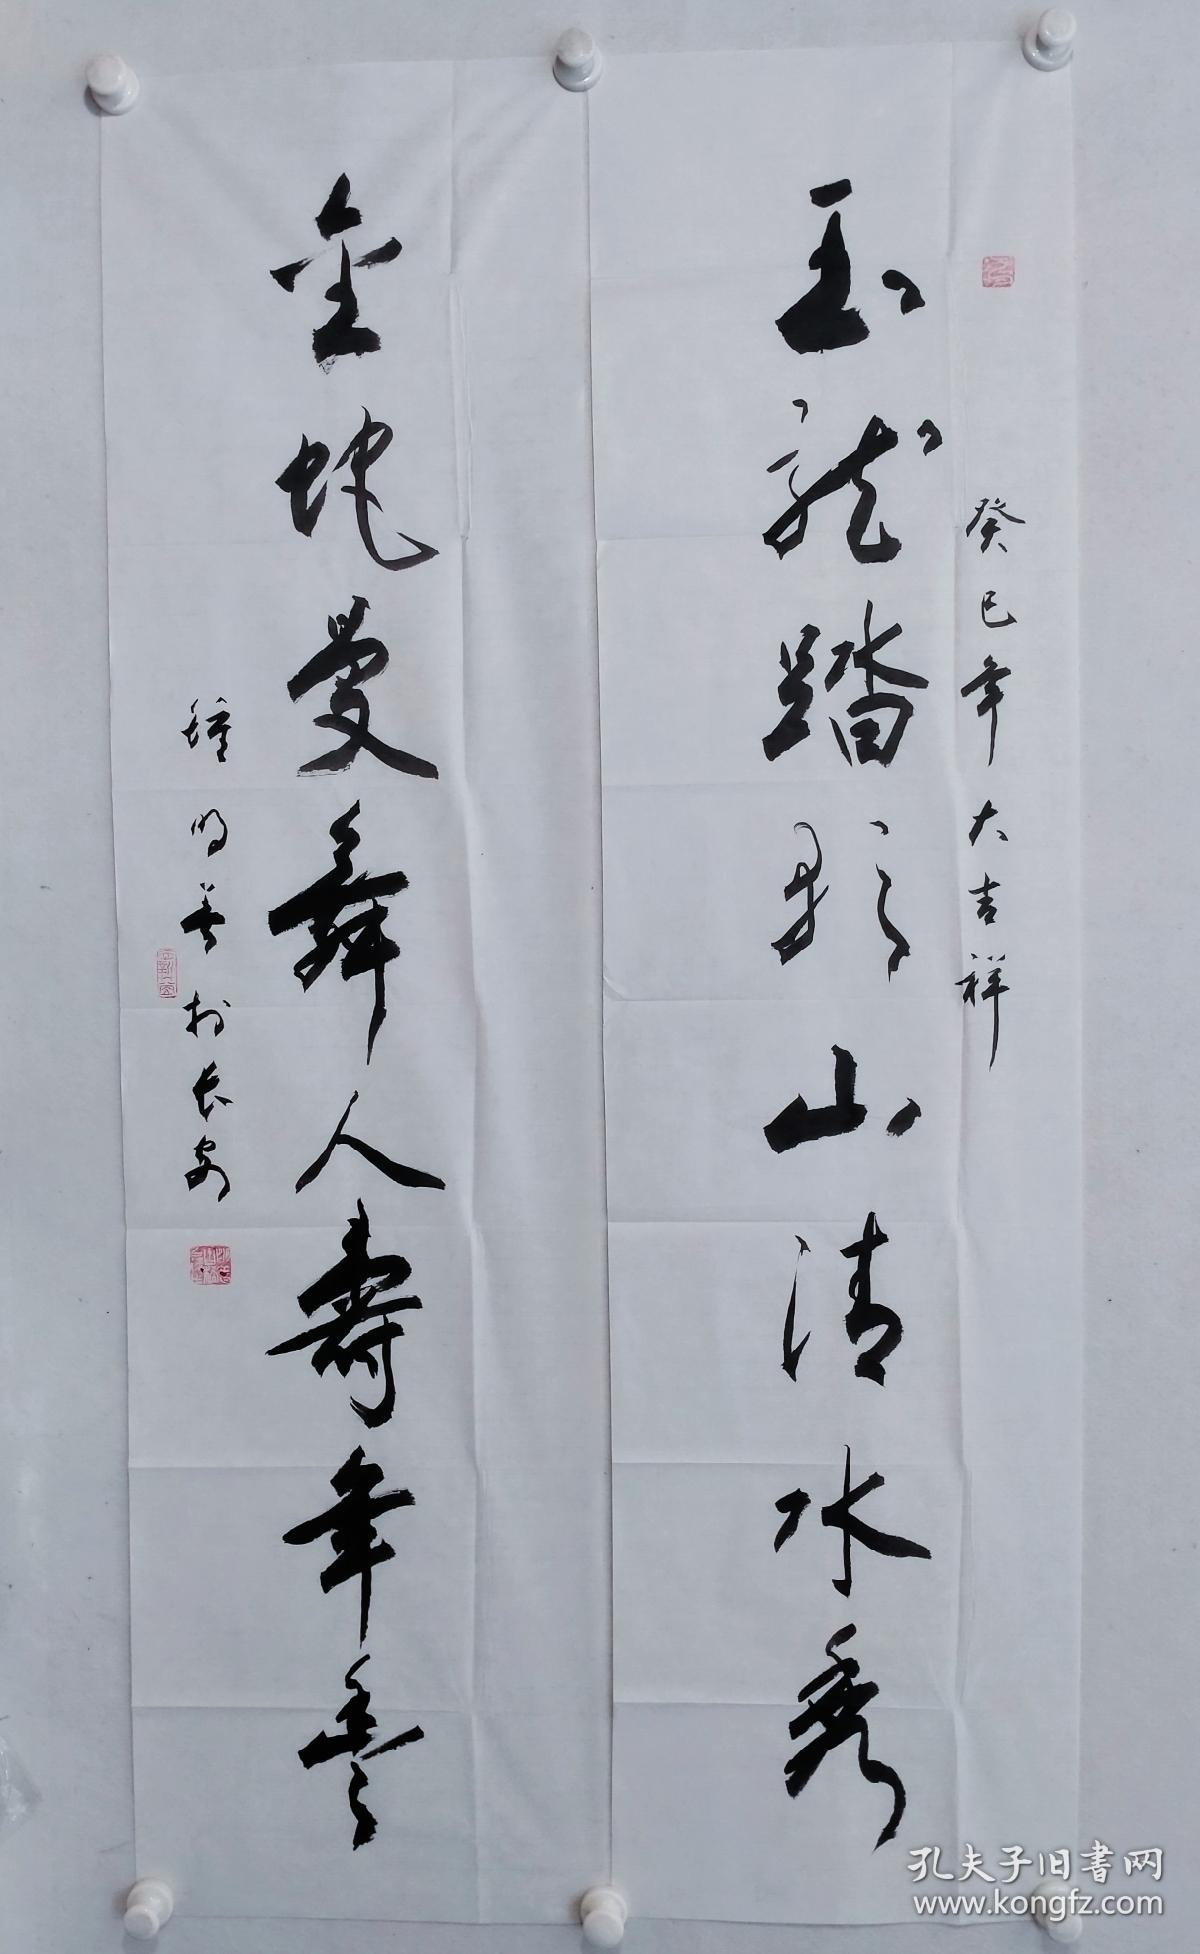 癸巳年大吉祥
玉龙踏歌山清水秀
金蛇曼舞人寿年丰
钟明善于长安
孔夫子旧書网
www.kongfz.com